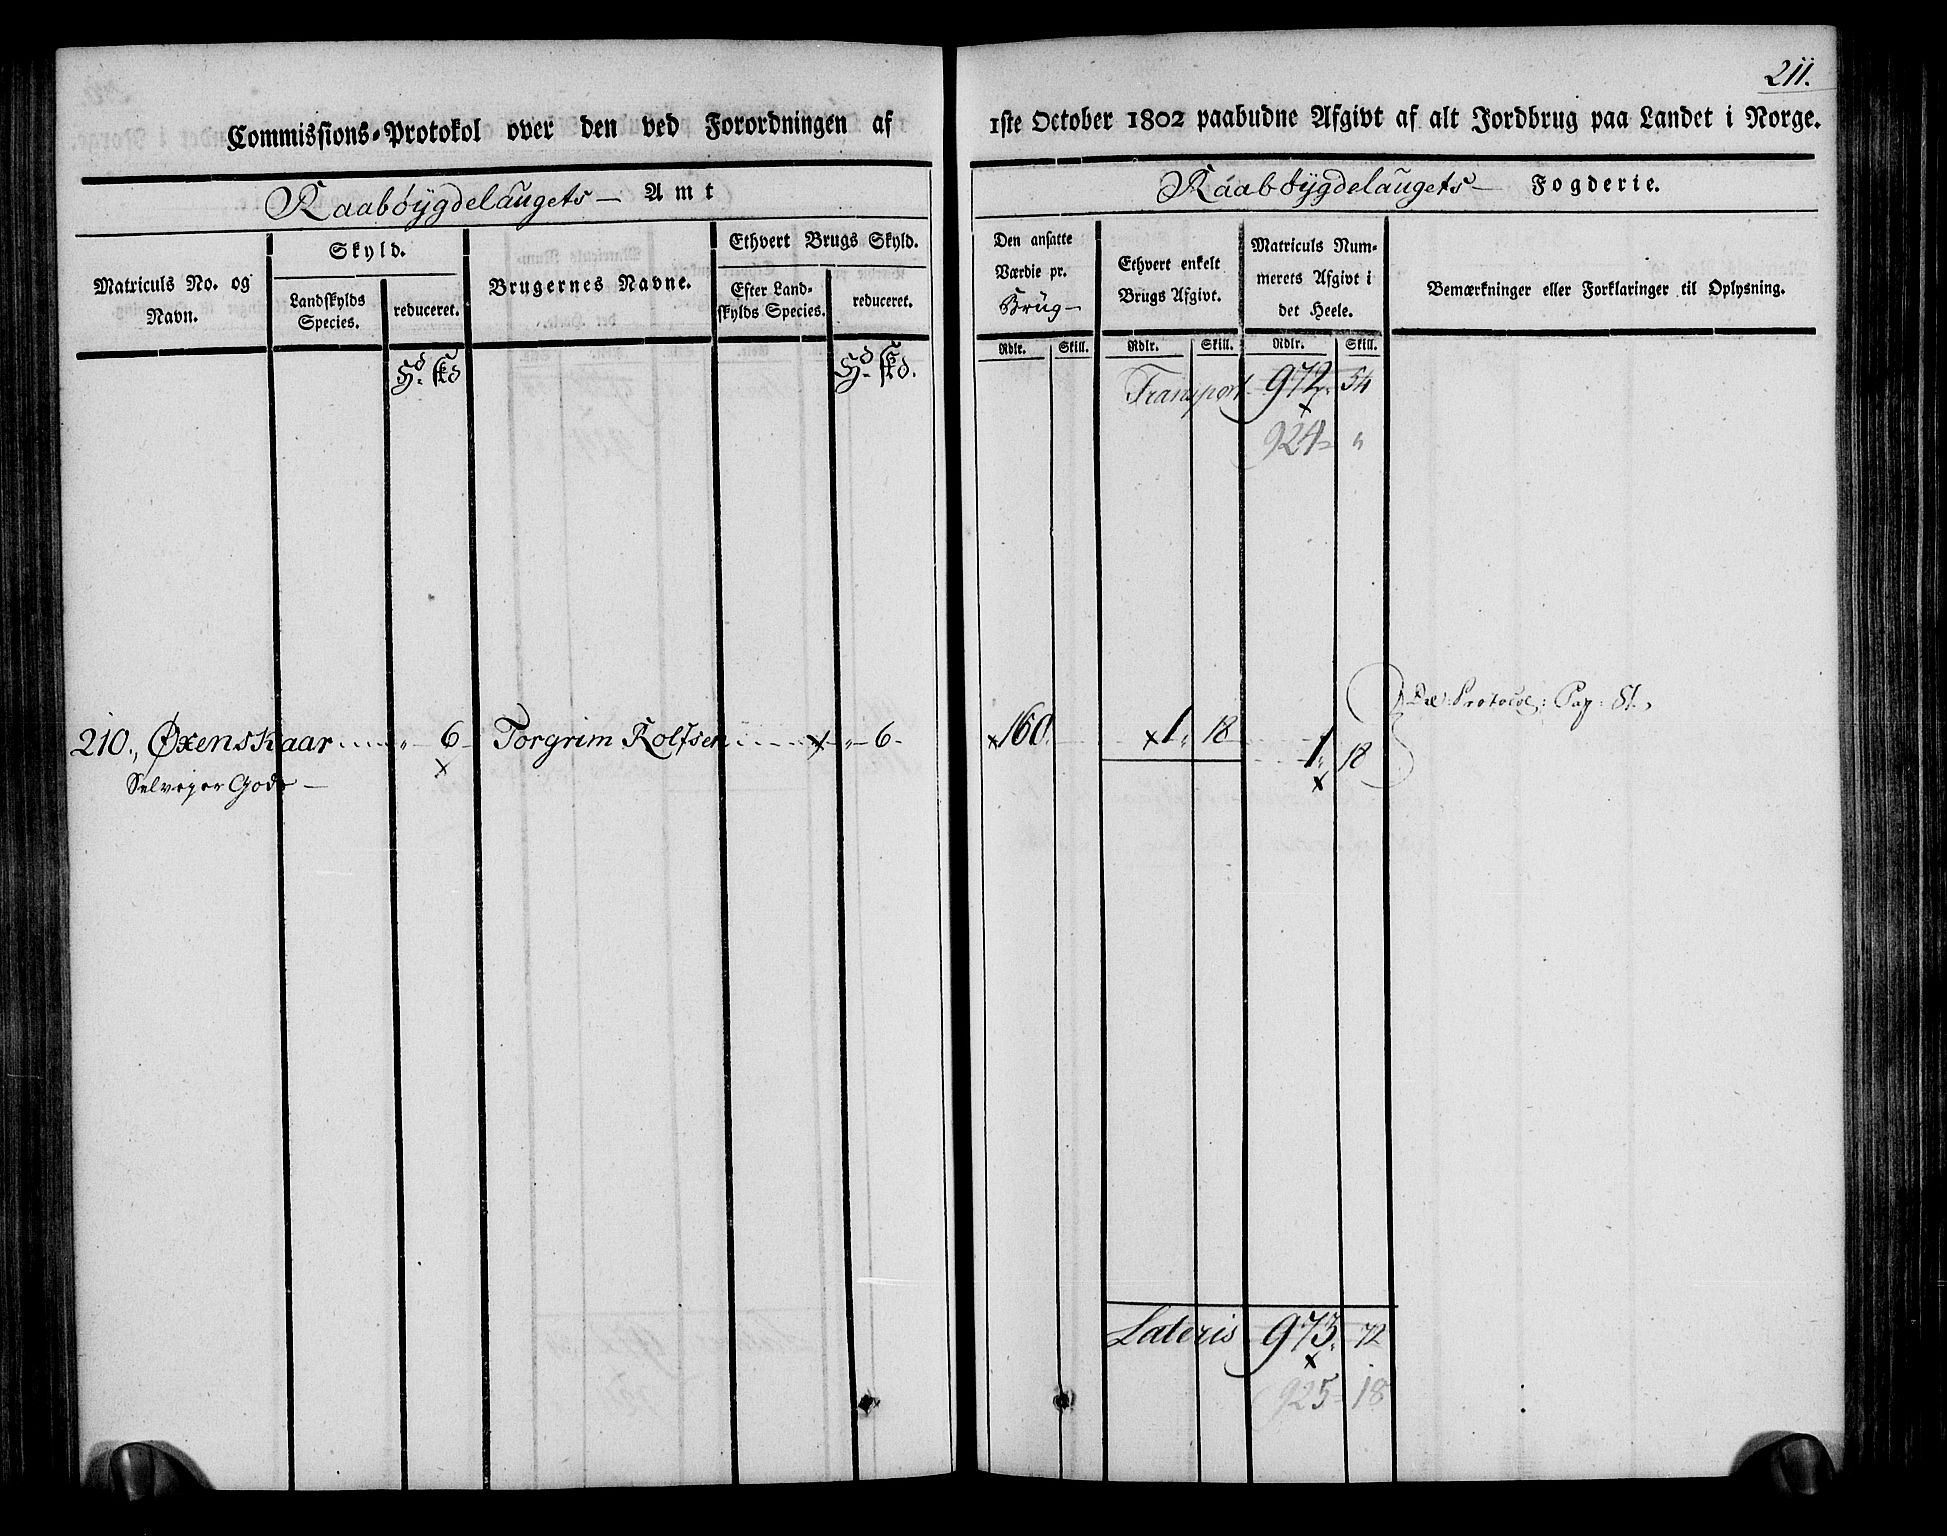 211.
Commissions-Protokol over den ved Forordningen af 1ste October 1802 paabudne Afgivt af alt Jordbrug paa Landet i Norge.
Raabøygdelaugets Amt
Raabøygdelaugets Fogderie.
Matriculs No. og Navn.
Skyld.
Landskylds Species.
reduceret.
Brugernes Navne.
Ethvert Brugs Skyld.
Efter Landskylds Species.
reduceret.
Den ansatte Værdie pr. Brüg
Ethvert enkelt Brugs Afgivt.
Matriculs Nummerets Afgivt i det Heele.
Bemærkninger eller Forklaringer til Oplysning.
Rdlr. Skill. Rdlr. Skill. Rdlr. Skill.
Hd. Skd Hd. Skd.
Transport 972. 54
924 "
Protocol: Pag: 51.
210., Øxenskaar " 6 Torgrim Rolfsen " 6 160. 1. 18 1. 18
Selveyer Gods
Lateris 973. 72
925 18